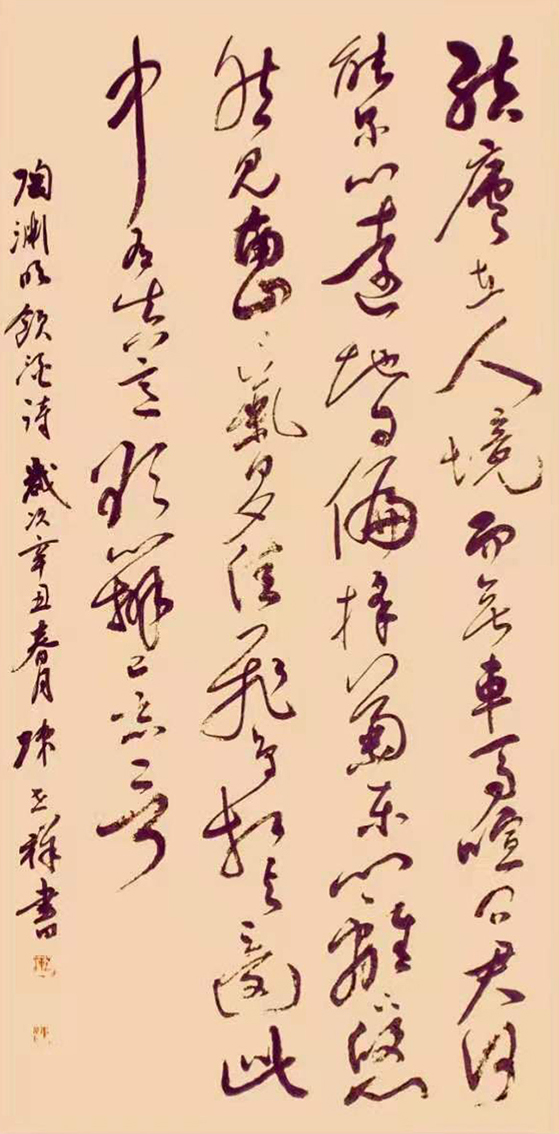 結廬在人境而無車馬喧問君何
能尔心遠地自偏採菊東籬下悠
然見南山〻氣日夕佳飛鳥相與還此
中有真意欲辨已忘言
陶淵明飲酒詩 歲次辛丑春月 陳祥書